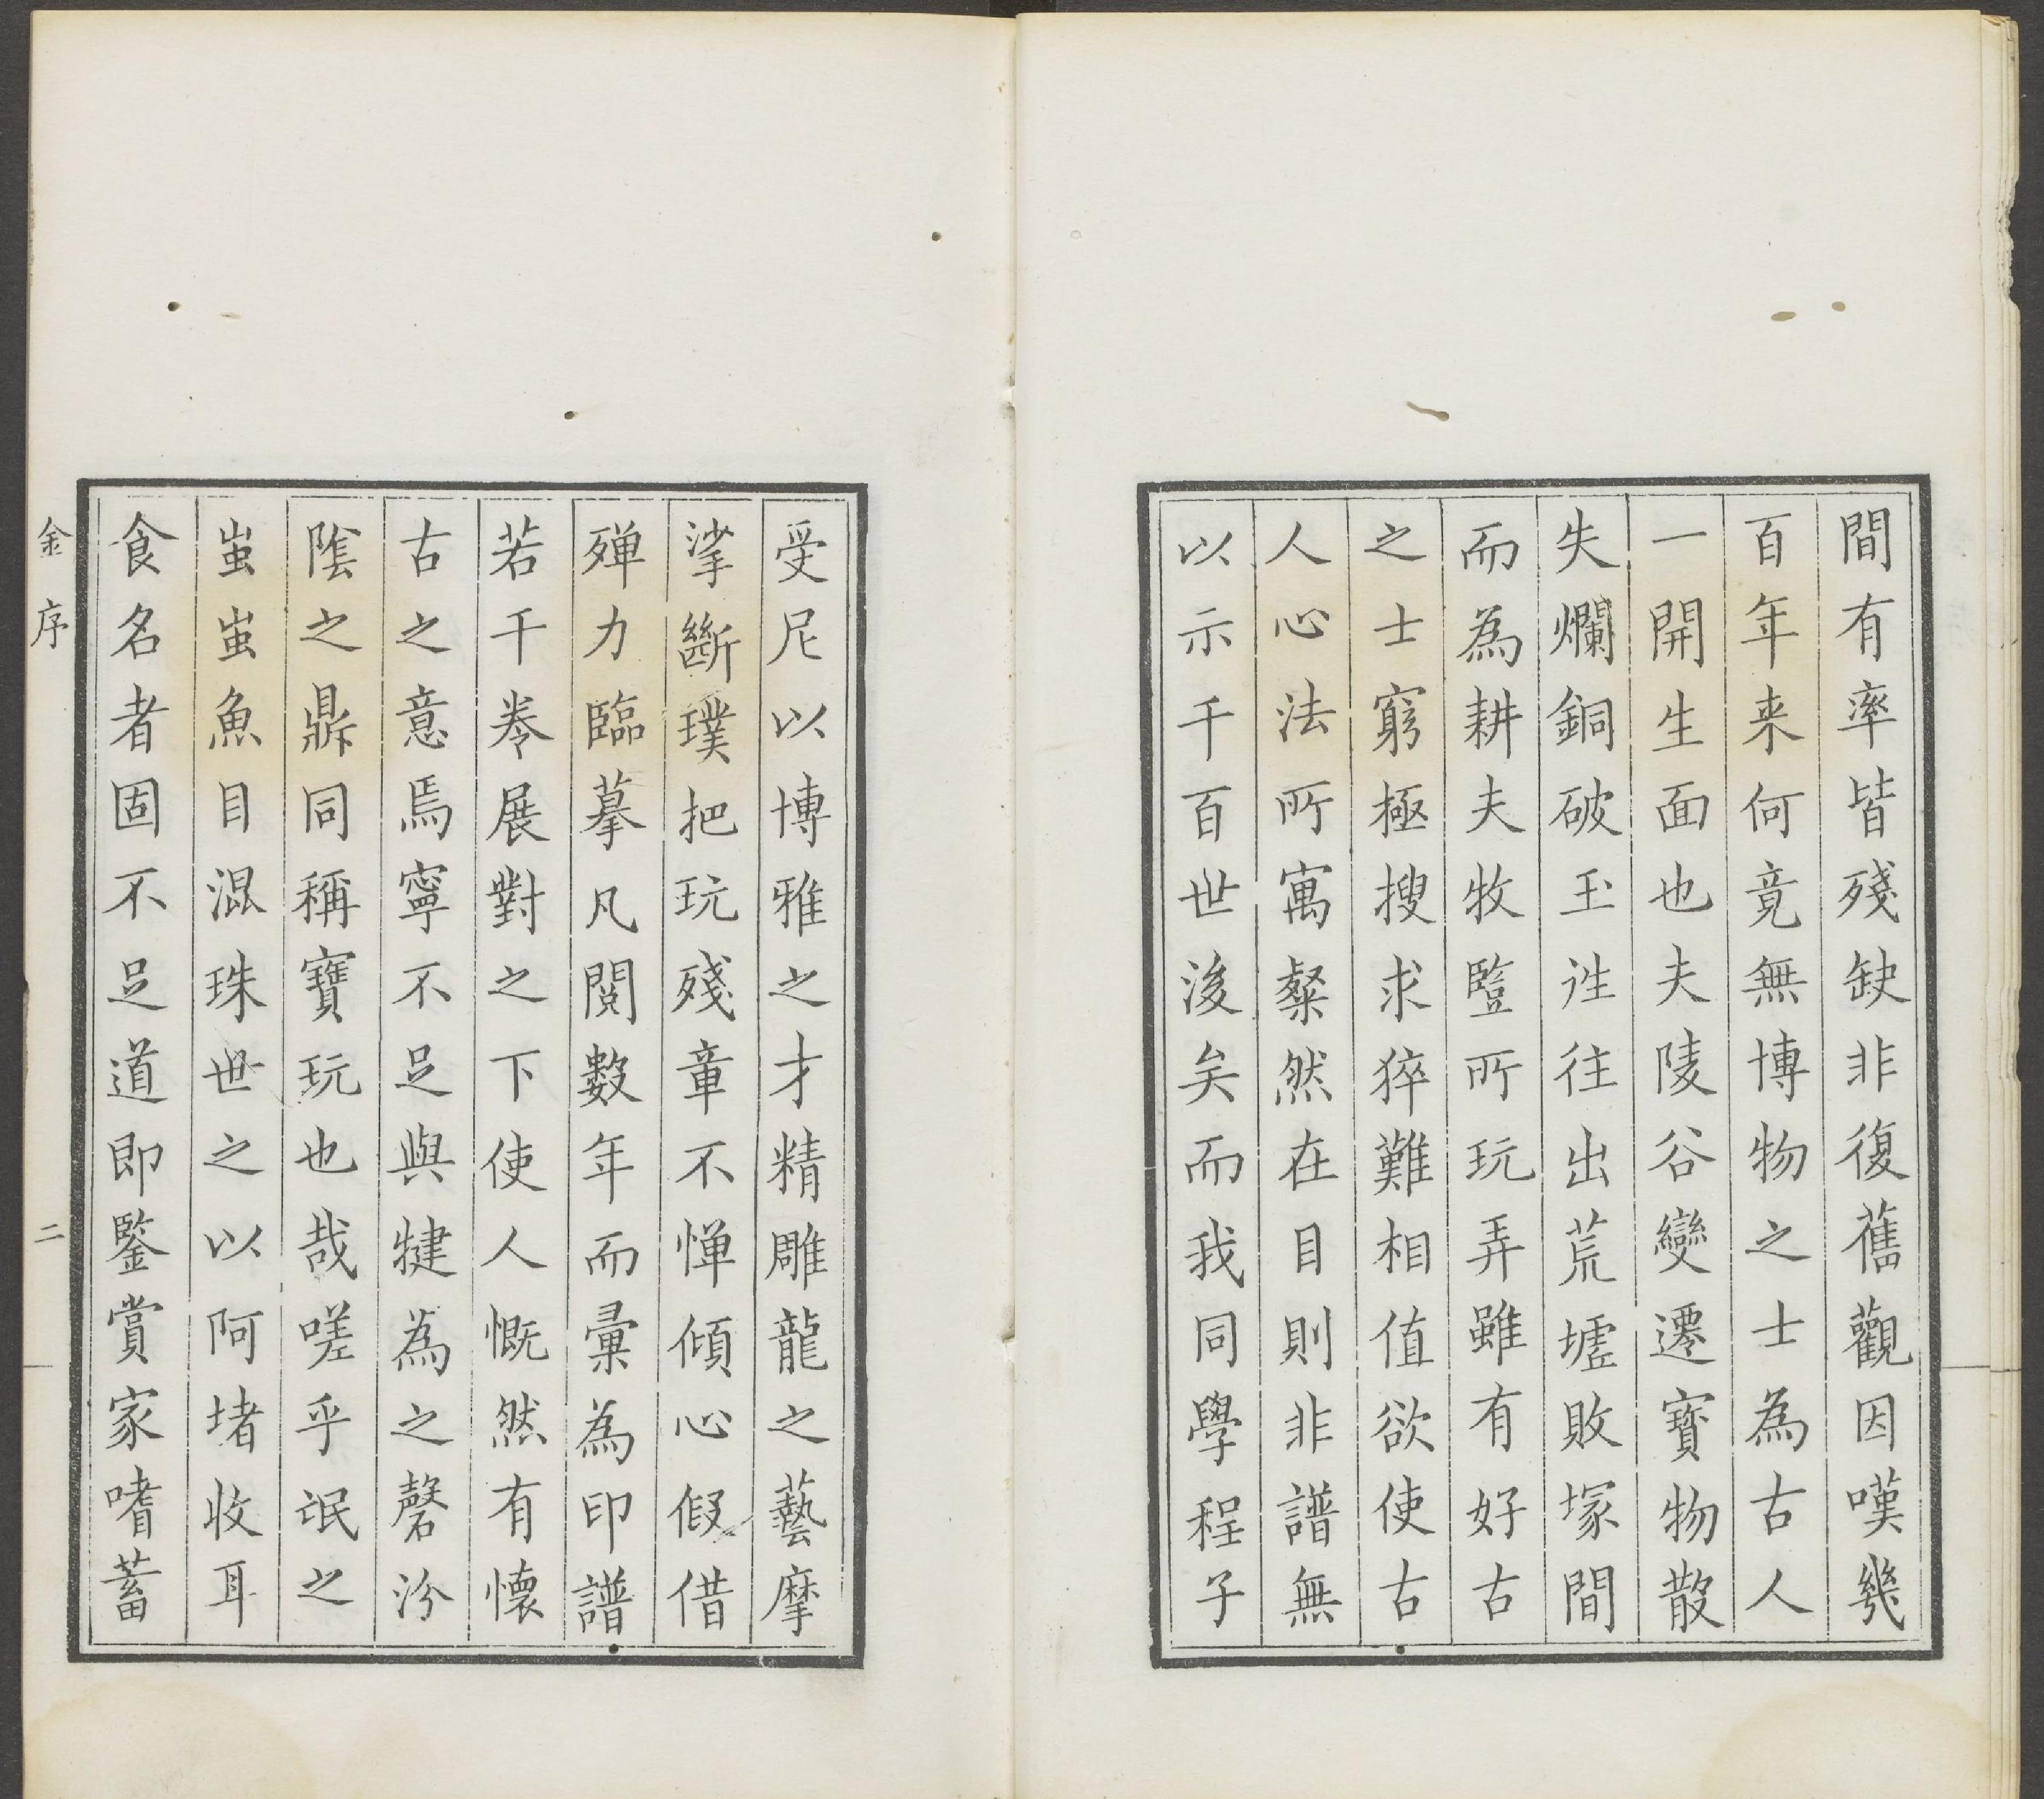 間有率皆殘缺非復舊觀因嘆幾
百年来何竟無博物之士為古人
一開生面也夫陵谷變遷寳物散
失爛銅破玉徃往出荒墟敗塚間
而為耕夫牧豎所玩弄雖有好古
之士窮極搜求猝難相值欲使古
人心法所寓粲然在目則非譜無
以示千百世後矣而我同學程子
受尼以博雅之才精雕龍之藝摩
挲斷璞把玩殘章不憚傾心假借
殫力臨摹凡閱數年而彙為印譜
若干卷展對之下使人慨然有懷
古之意焉寧不足與犍為之磬汾
陰之鼎同稱寶玩也哉嗟乎氓之
蚩蚩魚目混珠世之以阿堵收耳
食名者固不足道即鑒賞家嗜蓄
金序 二